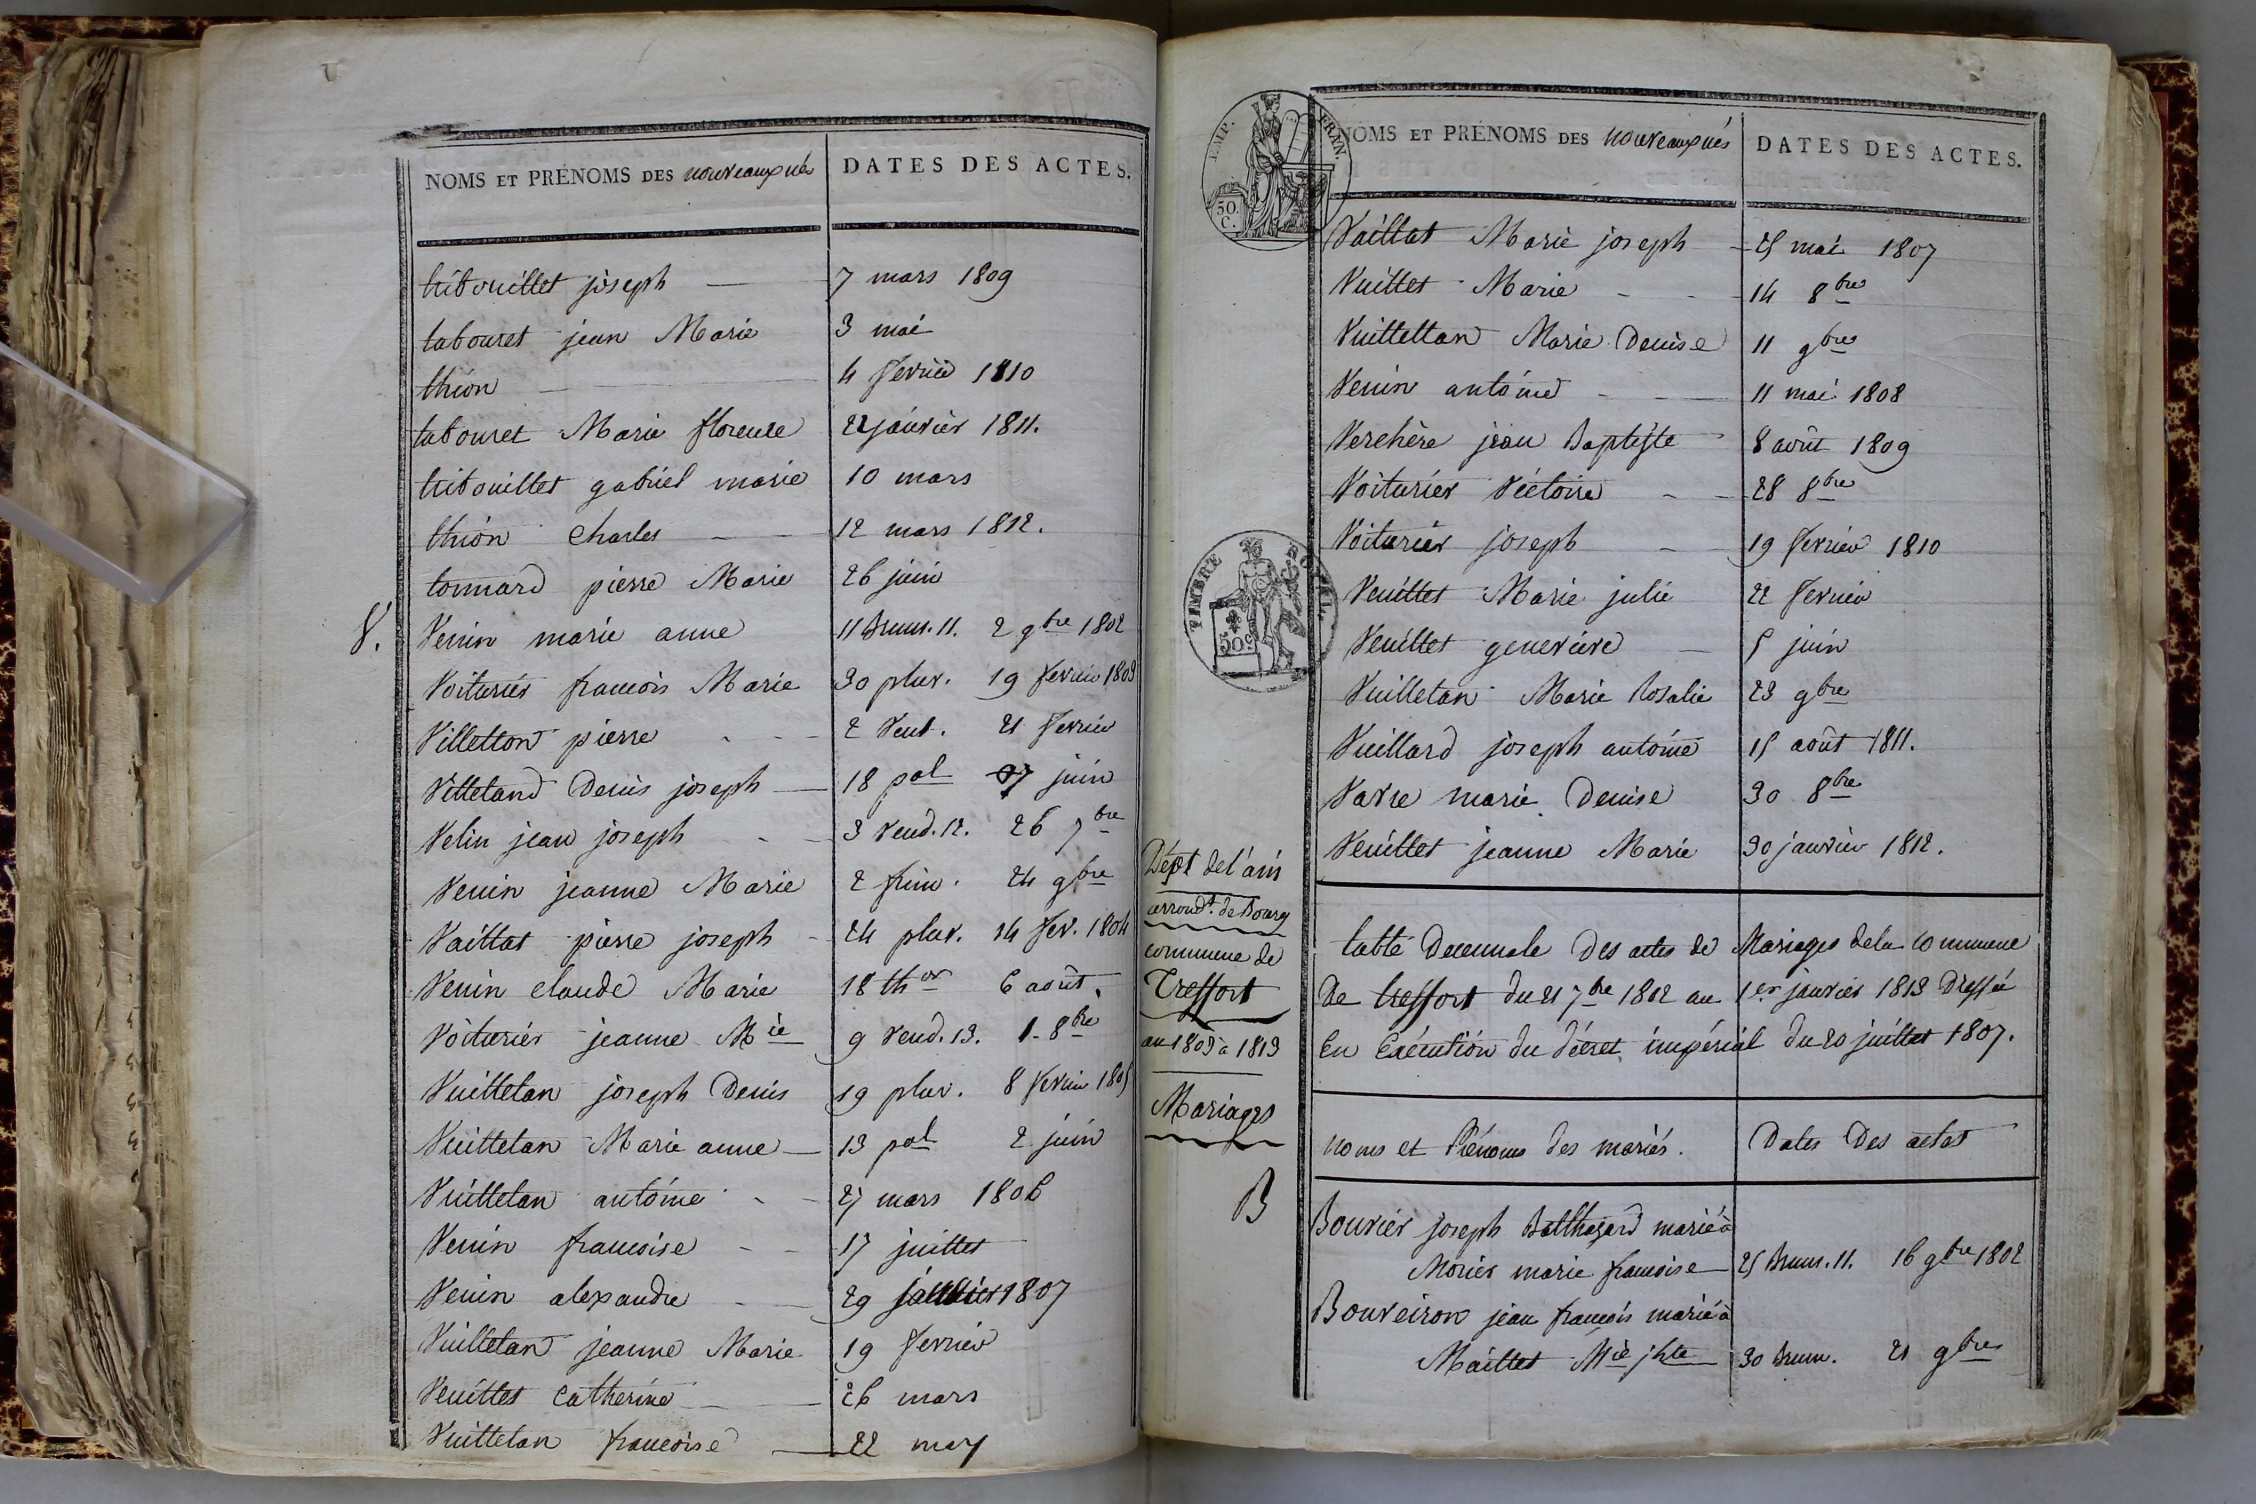 NOMS ET PRÉNOMS DES nouveaux nés DATES DES ACTES.
tribouillet joseph 7 mars 1809
tabouret jean Marie 3 mai
thion 4 fevrier 1810
tabouret Marie florence 22 janvier 1811.
tribouillet gabriel marie 10 mars
thion charles 12 mars 1812.
tonnard pierre Marie 26 juin
V. Venin marie anne 11 brum. 11. 2 9bre 1802
Voiturier francois Marie 30 pluv. 19 fevrier 1803
Villetton pierre 2 Vent. 21 fevrier
Villetand Denis joseph 18 pal 7 juin
Velin jean joseph 3 vend. 12. 26 7bre
Venin jeanne Marie 2 frim. 24 9bre
Vaillat pierre joseph 24 pluv. 14 fev. 1804
Venin claude Marie 18 thor 6 août.
Voiturier jeanne Mie 9 vend. 13. 1 8bre
Vuilletan joseph Denis 19 pluv. 8 fevrier 1805
Vuilletan Marie anne 13 pal 2 juin
Vuilletan antoine 27 mars 1806
Venin francoise 17 juillet
Venin alexandre 29 janvier 1807
Vuilletan jeanne Marie 19 fevrier
Veuillet catherine 26 mars
Vuilletan francoise 22 may
EMP. FRAN.
50. C.
NOMS ET PRÉNOMS DES nouveaux nés DATES DES ACTES.
Vaillat Marie joseph 25 mai 1807
Vuillet Marie 14 8bre
Vuillettan Marie Denise 11 9bre
Venin antoine 11 mai 1808
Verchère jean Baptiste 8 août 1809
Voiturier Victoire 28 8bre
Voiturier joseph 19 fevrier 1810
TIMBRE ROYAL
50 c
Veuillet Marie julie 22 fevrier
Veuillet genevieve 5 juin
Vuilletan Marie Rosalie 23 9bre
Vuillard joseph antoine 15 août 1811.
Vavre marie Denise 30 8bre
Veuillet jeanne Marie 30 janvier 1812.
Dépt de l'ain
arrondt. de Bourg
commune de
Treffort
an 1803 à 1813
Mariages
table Decennale Des actes de Mariages de la commune
De treffort du 21 7bre 1802 au 1er janvier 1813 Dressée
En Exécution du décret impérial du 20 juillet 1807.
noms et Prénoms des mariés. Dates Des actes
B
Bouvier joseph Balthazard marié à
Morier marie francoise 25 brum. 11. 16 9bre 1802
Bouveiron jean françois marié à
Maillet Mie jhte 30 brum. 21 9bre